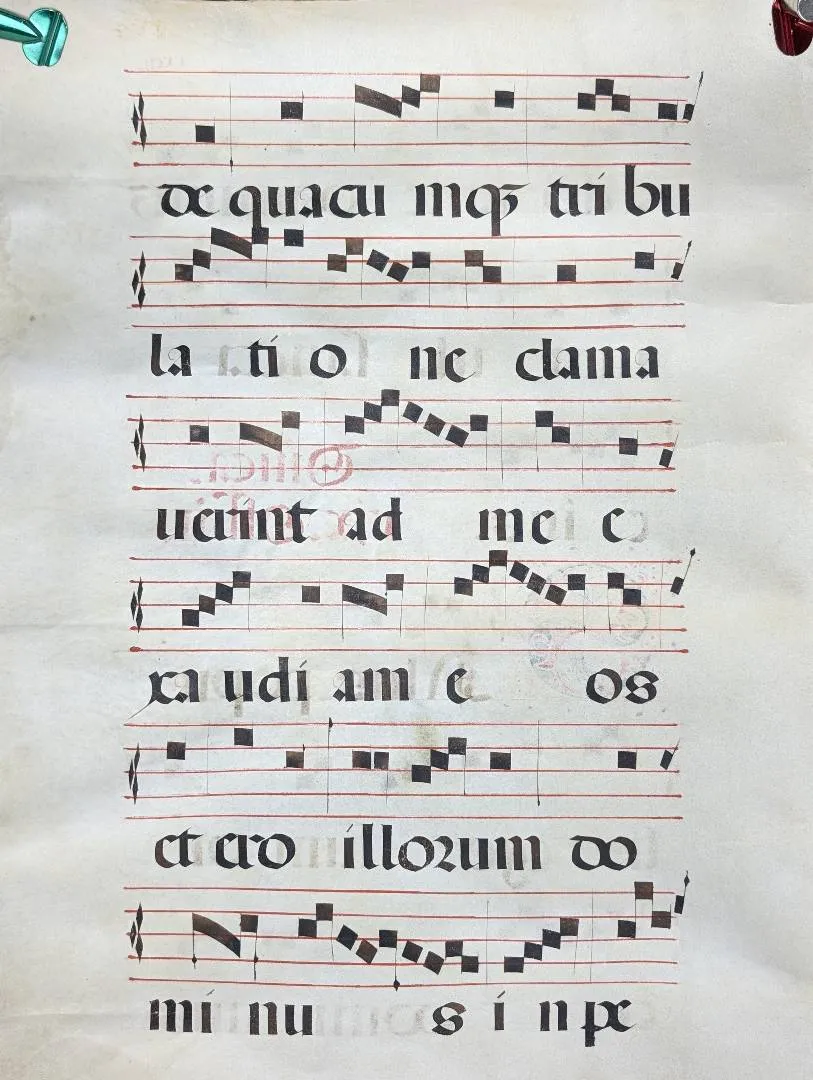 de quacu mqꝫ tri bu
la ti o ne clama
uerint ad me e
xa udi am e os
et ero illorum do
mi nu s i n pe